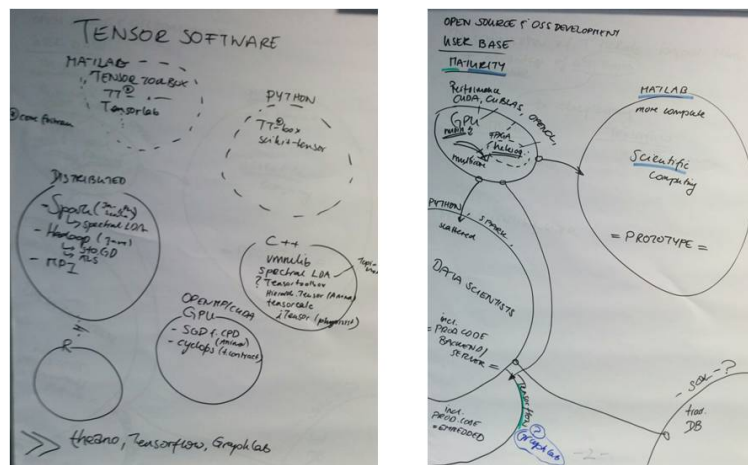 TENSOR SOFTWARE
MATLAB
TENSOR TOOLBOX
TT
Tensorlab
PYTHON
TT box
scikit-tensor
DISTRIBUTED
- Spark
↳ spectral LDA
- Hadoop (Java)
↳ ALS
- MPI
C++
vmmlib
spectral LDA
? Tensortoolbox
Hierarch. Tensor (Anima)
tensorcalc
iTensor (physicist)
OPENMP/CUDA
GPU
- SGD f. CPD
(Anima)
- cyclops (t.contract)
R
>> theano, Tensorflow, Graphlab
OPEN SOURCE & OSS DEVELOPMENT
USER BASE
MATURITY
Performance
CUDA, CUBLAS, OPENCL
GPU
FPGA
MATLAB
more complete
Scientific
computing
= PROTOTYPE =
PYTHON, SPARK,
scattered
DATA SCIENTISTS
incl.
= PROD CODE
BACKEND/
SERVER =
Tensorflow
incl.
PROD. CODE
= EMBEDDED
?
Graphlab
- 2 -
- SQL - ?
trad.
DB